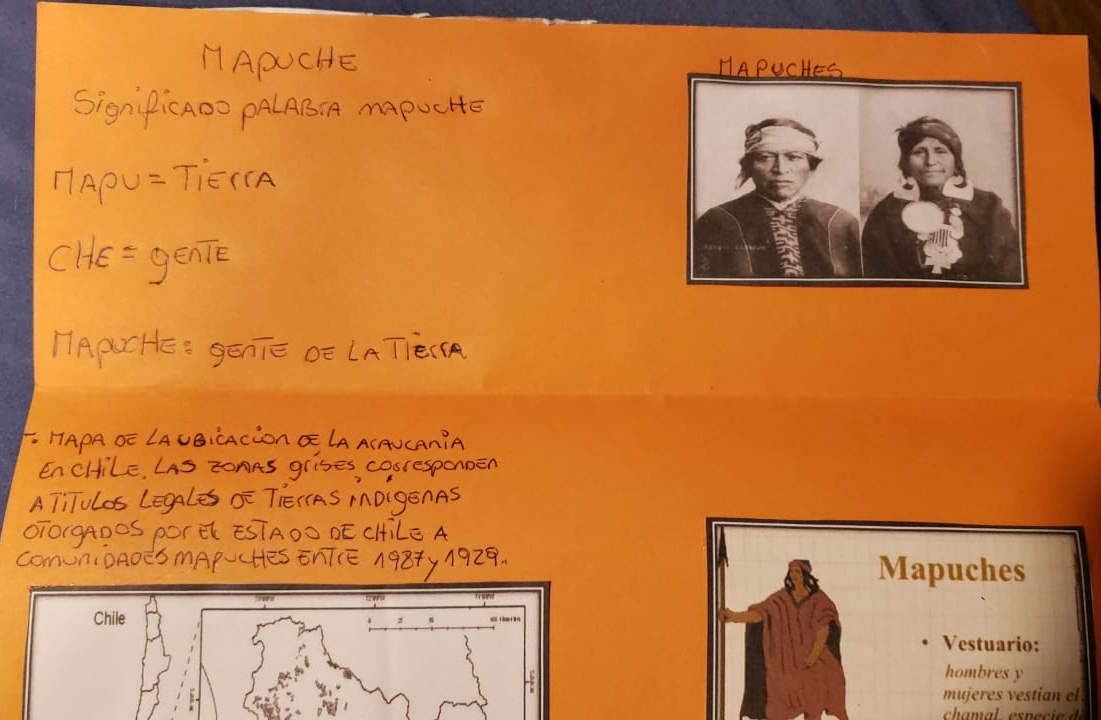 MAPUCHE
Significado palabra mapuche
MAPU = Tierra
CHE = gente
MAPUCHE: gente de la Tierra
MAPUCHES
-. MAPA DE LA UBICACION DE LA ARAUCANIA
EN CHILE. LAS ZONAS grises, corresponden
A TITULOS LEGALES DE TIERRAS INDIGENAS
OTORGADOS POR EL ESTADO DE CHILE A
COMUNIDADES MAPUCHES ENTRE 1987 y 1929.
Chile
Mapuches
• Vestuario:
hombres y
mujeres vestian el
chamal, especie de